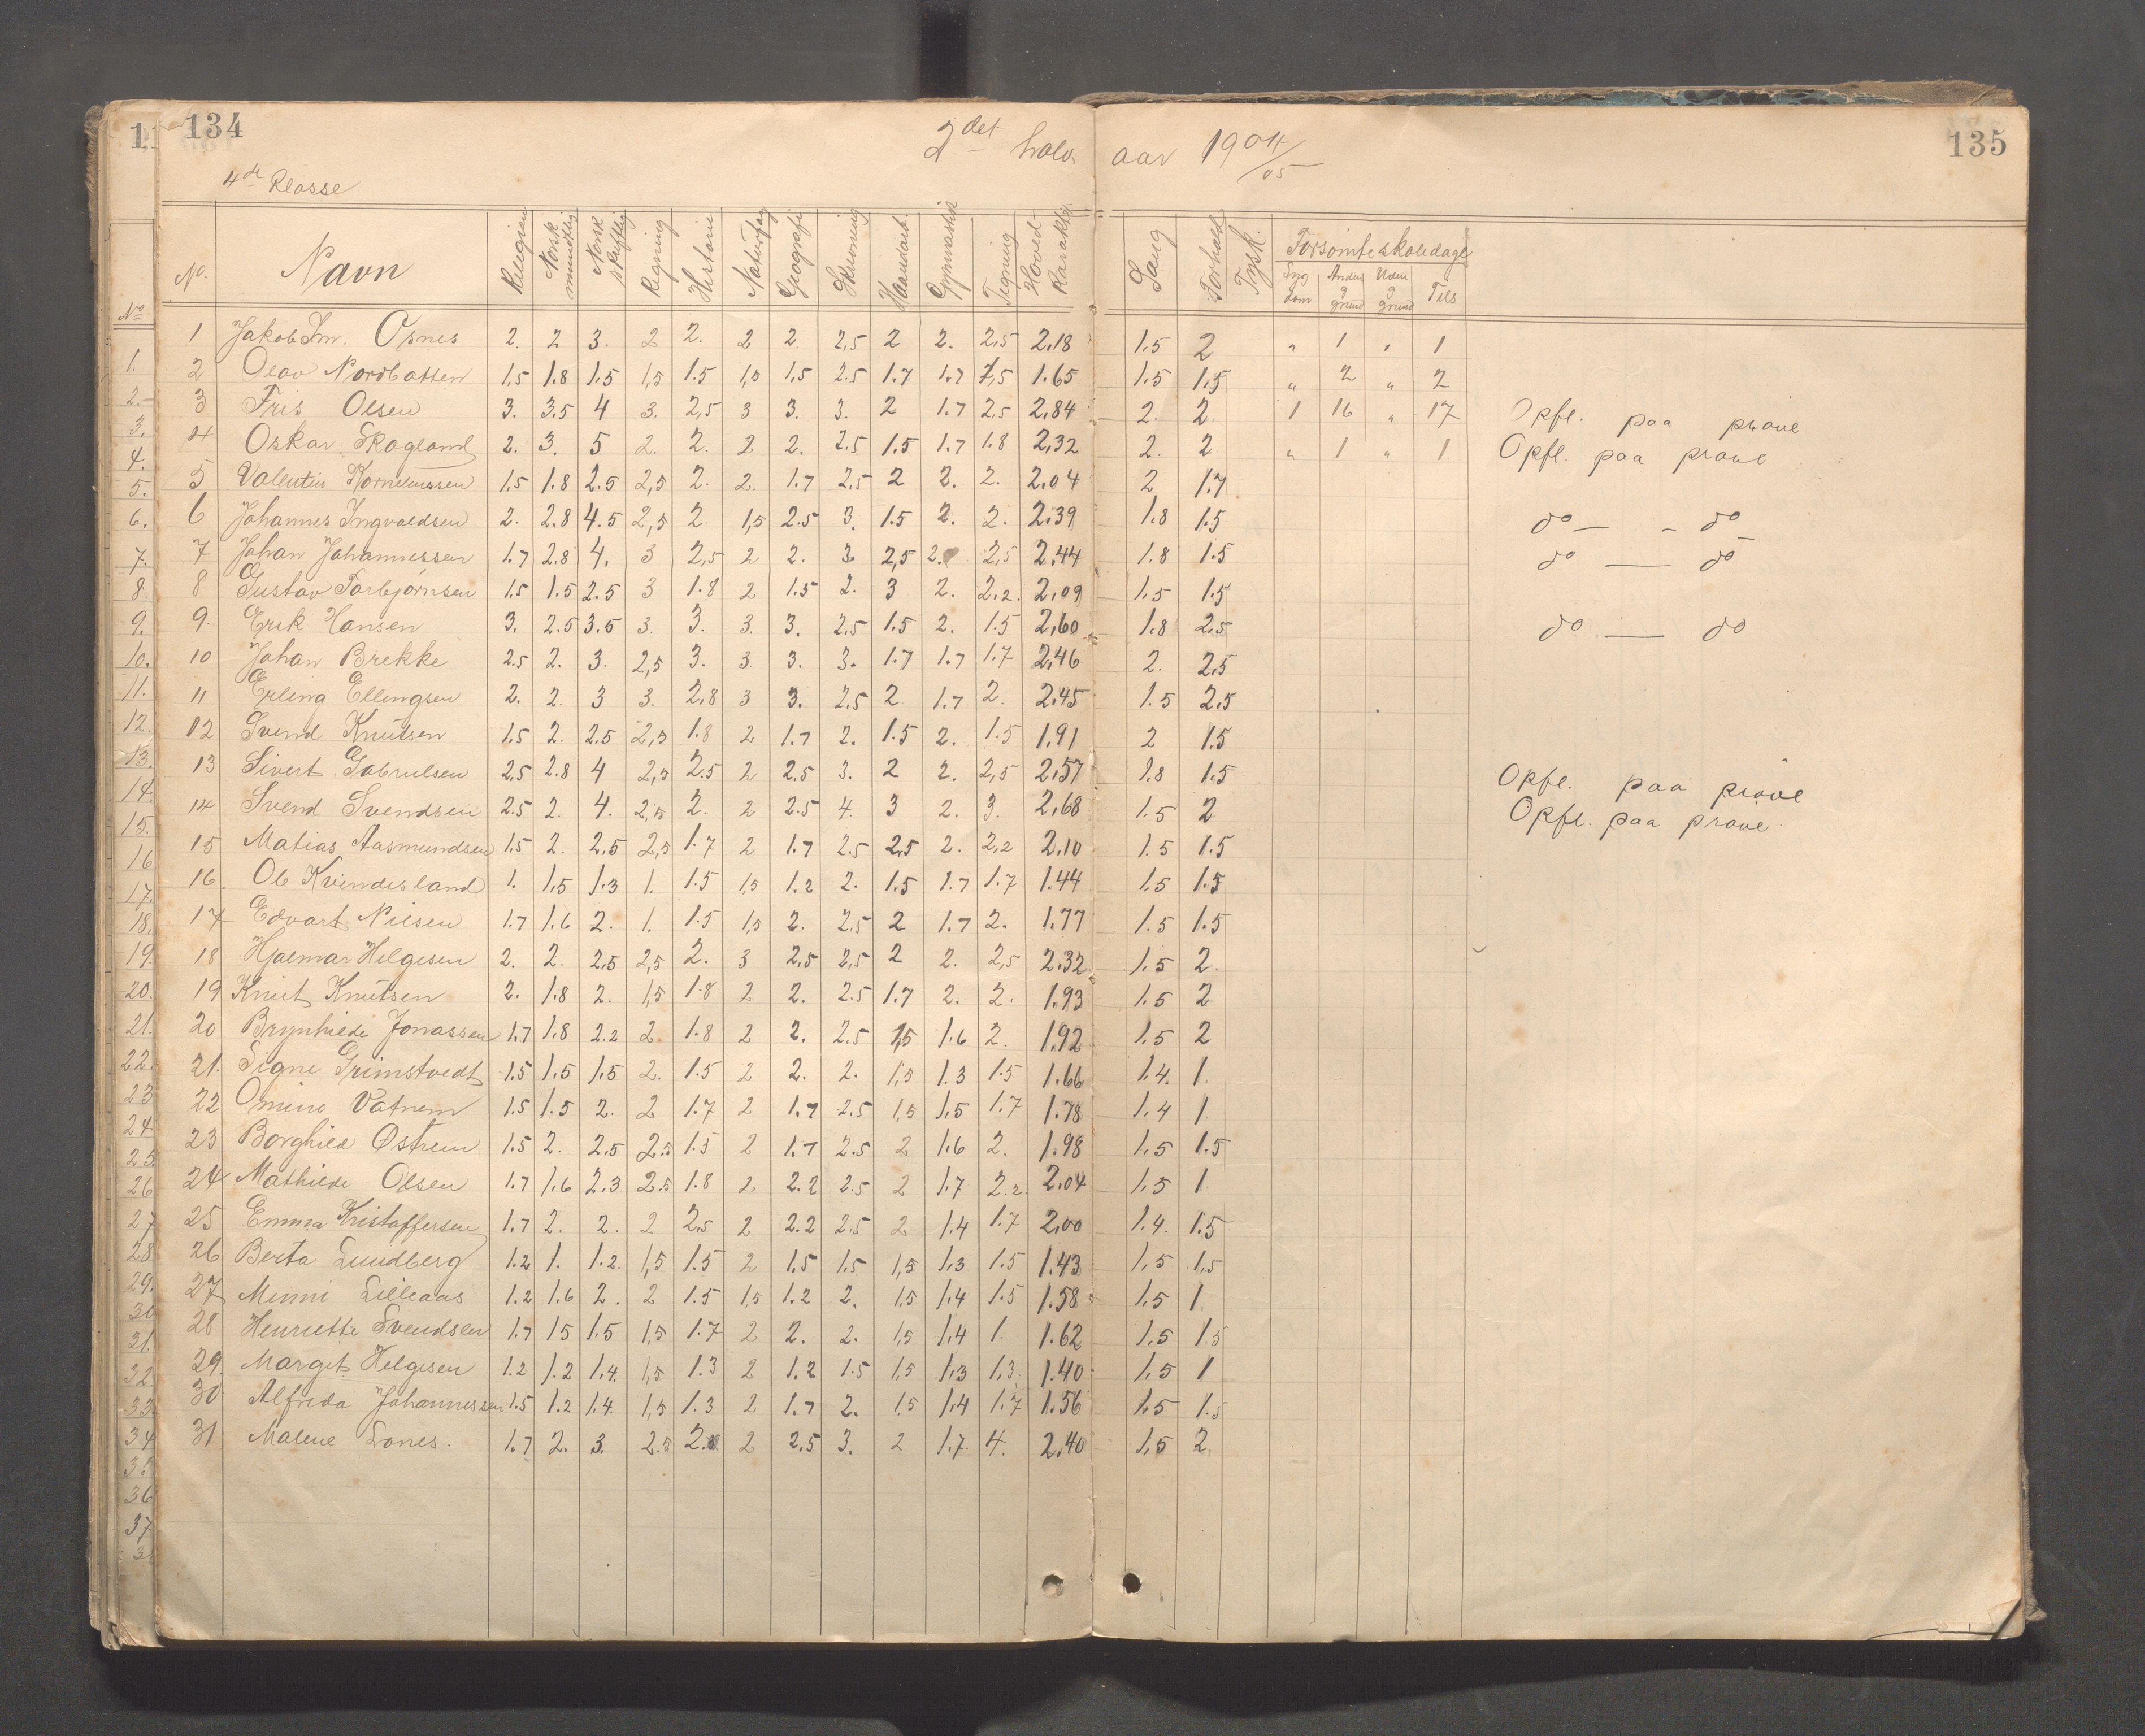 134
2det halv aar 1904/05
135
4de Klasse
No. Navn Religion Norsk mundtlig Norsk skriftlig Regning Historie Naturfag Geografi Skrivning Haandarb. Gymnastik Tegning Hoved- Karakter Sang Forhold Tysk. Forsømte skoledage
Syg dom Anden g grund Uden g grund Tils
1 Jakob Im. Osnes 2. 2 3. 2 2. 2 2. 2,5 2 2. 2,5 2.18 1.5 2 " 1 " 1
2 Olav Nordbotten 1,5 1.8 1.5 1,5 1.5 1,5 1,5 2.5 1.7 1.7 1,5 1.65 1.5 1.5 " 2 " 2
3 Olsen 3. 3.5 4 3. 2,5 3 3. 3. 2 1.7 2.5 2,84 2. 2. 1 16 " 17 Opfl. paa prøve
4 Oskar Skogland 2. 3. 5 2. 2. 2 2. 2.5 1.5 1.7 1.8 2,32 2. 2 " 1 " 1 Opfl. paa prøve
5 Valentin Korneliussen 1,5 1.8 2.5 2,5 2. 2. 1.7 2,5 2 2. 2. 2.04 2 1.7
6 Johannes Ingvaldsen 2. 2.8 4.5 2,5 2. 1,5 2.5 3. 1.5 2. 2. 2.39 1.8 1.5 do — - do
7 Johan Johannessen 1.7 2.8 4. 3 2,5 2 2. 3 2,5 2. 2,5 2.44 1.8 1.5 do — do
8 Gustav Torbjørnsen 1.5 1.5 2.5 3 1.8 2 1.5 2. 3 2. 2.2. 2,09 1.5 1.5
9. Erik Hansen 3. 2.5 3.5 3. 3. 3. 3. 2.5 1.5 2. 1.5 2,60 1.8 2.5 do — do
10 Johan Brekke 2.5 2. 3. 2,5 3. 3. 3. 3. 1.7 1.7 1.7 2,46 2. 2,5
11 Erling Ellingsen 2. 2. 3 3. 2,8 3 3. 2.5 2 1.7 2. 2.45 1.5 2,5
12 Svend Knutsen 1.5 2. 2.5 2,5 1.8 2 1.7 2. 1.5 2. 1.5 1,91 2 1.5
13 Sivert Gabrielsen 2,5 2.8 4 2,5 2.5 2 2.5 3. 2 2. 2,5 2.57 1.8 1.5 Opfl. paa prøve
14 Svend Svendsen 2.5 2. 4. 2,5 2. 2 2.5 4. 3 2. 3. 2,68 1.5 2 Opfl. paa prøve.
15 Matias Aasmundsen 1.5 2. 2.5 2,5 1.7 2 1.7 2.5 2,5 2. 2,2 2.10 1.5 1.5
16. Ole Kvindesland 1. 1.5 1.3 1. 1.5 1,5 1.2 2. 1.5 1.7 1.7 1.44 1.5 1.5
17 Edvart Nilsen 1.7 1.6 2. 1. 1.5 1,5 2. 2.5 2 1.7 2. 1.77 1.5 1.5
18 Hjalmar Helgesen 2. 2. 2.5 2,5 2. 3 2.5 2,5 2 2. 2,5 2.32 1.5 2.
19 Knut Knutsen 2. 1.8 2. 1,5 1.8 2 2. 2.5 1.7 2. 2. 1.93 1.5 2
20 Brynhilde Jonassen 1.7 1.8 2.2 2 1.8 2 2. 2.5 1,5 1.6 2. 1.92 1.5 2
21. Signe Grimstvedt 1.5 1.5 1.5 2. 1.5 2 2. 2. 1,5 1.3 1.5 1.66 1.4. 1.
22 Omine Vatnem 1.5 1.5 2. 2 1.7 2 1.7 2.5 1,5 1.5 1.7 1.78 1.4 1
23 Borghild Østrem 1.5 2. 2,5 2.5 1.5 2 1.7 2.5 2 1.6 2. 1.98 1.5 1.5
24 Mathilde Olsen 1.7 1.6 2.3 2.5 1.8 2. 2.2 2.5 2 1.7 2.2 2.04 1.5 1
25 Emma Kristoffersen 1.7 2. 2. 2 2.5 2 2.2 2.5 2 1.4 1.7 2,00 1.4. 1.5
26 Berta Lundberg 1.2 1. 1.2. 1,5 1.5 2 1.5 1.5 1,5 1.3 1.5 1.43 1.5 1,5
27 Minni Lilleaas 1.2 1.6 2. 2 1.5 1,5 1.2 2. 1,5 1.4 1.5 1.58 1.5 1.
28 Henriette Svendsen 1.7 15 1.5 1,5 1.7 2 2. 2. 1,5 1.4 1. 1.62 1.5 1.5
29 Margit Helgesen 1.2 1.2 1.4. 1,5 1.3 2 1.2 1.5 1,5 1.3 1.3. 1.40 1.5 1
30 Alfrida Johannessen 1.5 1.2 1.4. 1,5 1.3 2 1.7 2. 1.5 1.4 1.7 1.56 1.5 1.5
31 Malene Lones. 1.7 2. 3. 2.5 2. 2 2.5 3. 2 1.7. 4. 2.40 1.5 2.
11
No
1.
2.
3.
4.
5.
6.
7.
8.
9.
10.
11.
12.
13.
14.
15.
16
17.
18.
19.
20.
21.
22.
23
24
25
26
27
28
29.
30
31.
32
33
34
35
36
37